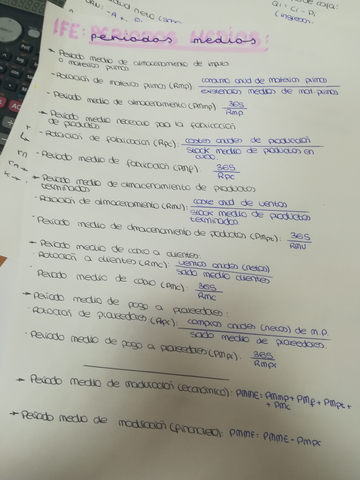 IFE: PERIODOS MEDIOS:
periodos medios
→ Periodo medio de almacenamiento de inputs
o materias primas
- Rotación de materias primas (Rmp) consumo anual de materias primas
existencias medias de mat. primas
- Periodo medio de almacenamiento (PMmp) 365
Rmp
→ Periodo medio necesario para la fabricación
de productos
- Rotación de fabricación (Rpc) costes anuales de producción
stock medio de productos en
curso
- Periodo medio de fabricación (PMf) 365
Rpc
→ Periodo medio de almacenamiento de productos
terminados
- Rotación de almacenamiento (RMV) coste anual de ventas
stock medio de productos
terminados
- Periodo medio de almacenamiento de productos (PMpt) 365
RMV
→ Periodo medio de cobro a clientes:
Rotación a clientes (Rmc) ventas anuales (netas)
saldo medio clientes
- Periodo medio de cobro (PMc) 365
Rmc
→ Periodo medio de pago a proveedores:
- Rotación de proveedores compras anuales (netas) de m.p
saldo medio de proveedores
- Periodo medio de pago a proveedores 365
→ Periodo medio de maduración (económico): PMME = PMmp + PMf + PMpt +
+ PMc
→ Periodo medio de maduración (financiero): PMMF = PMME -